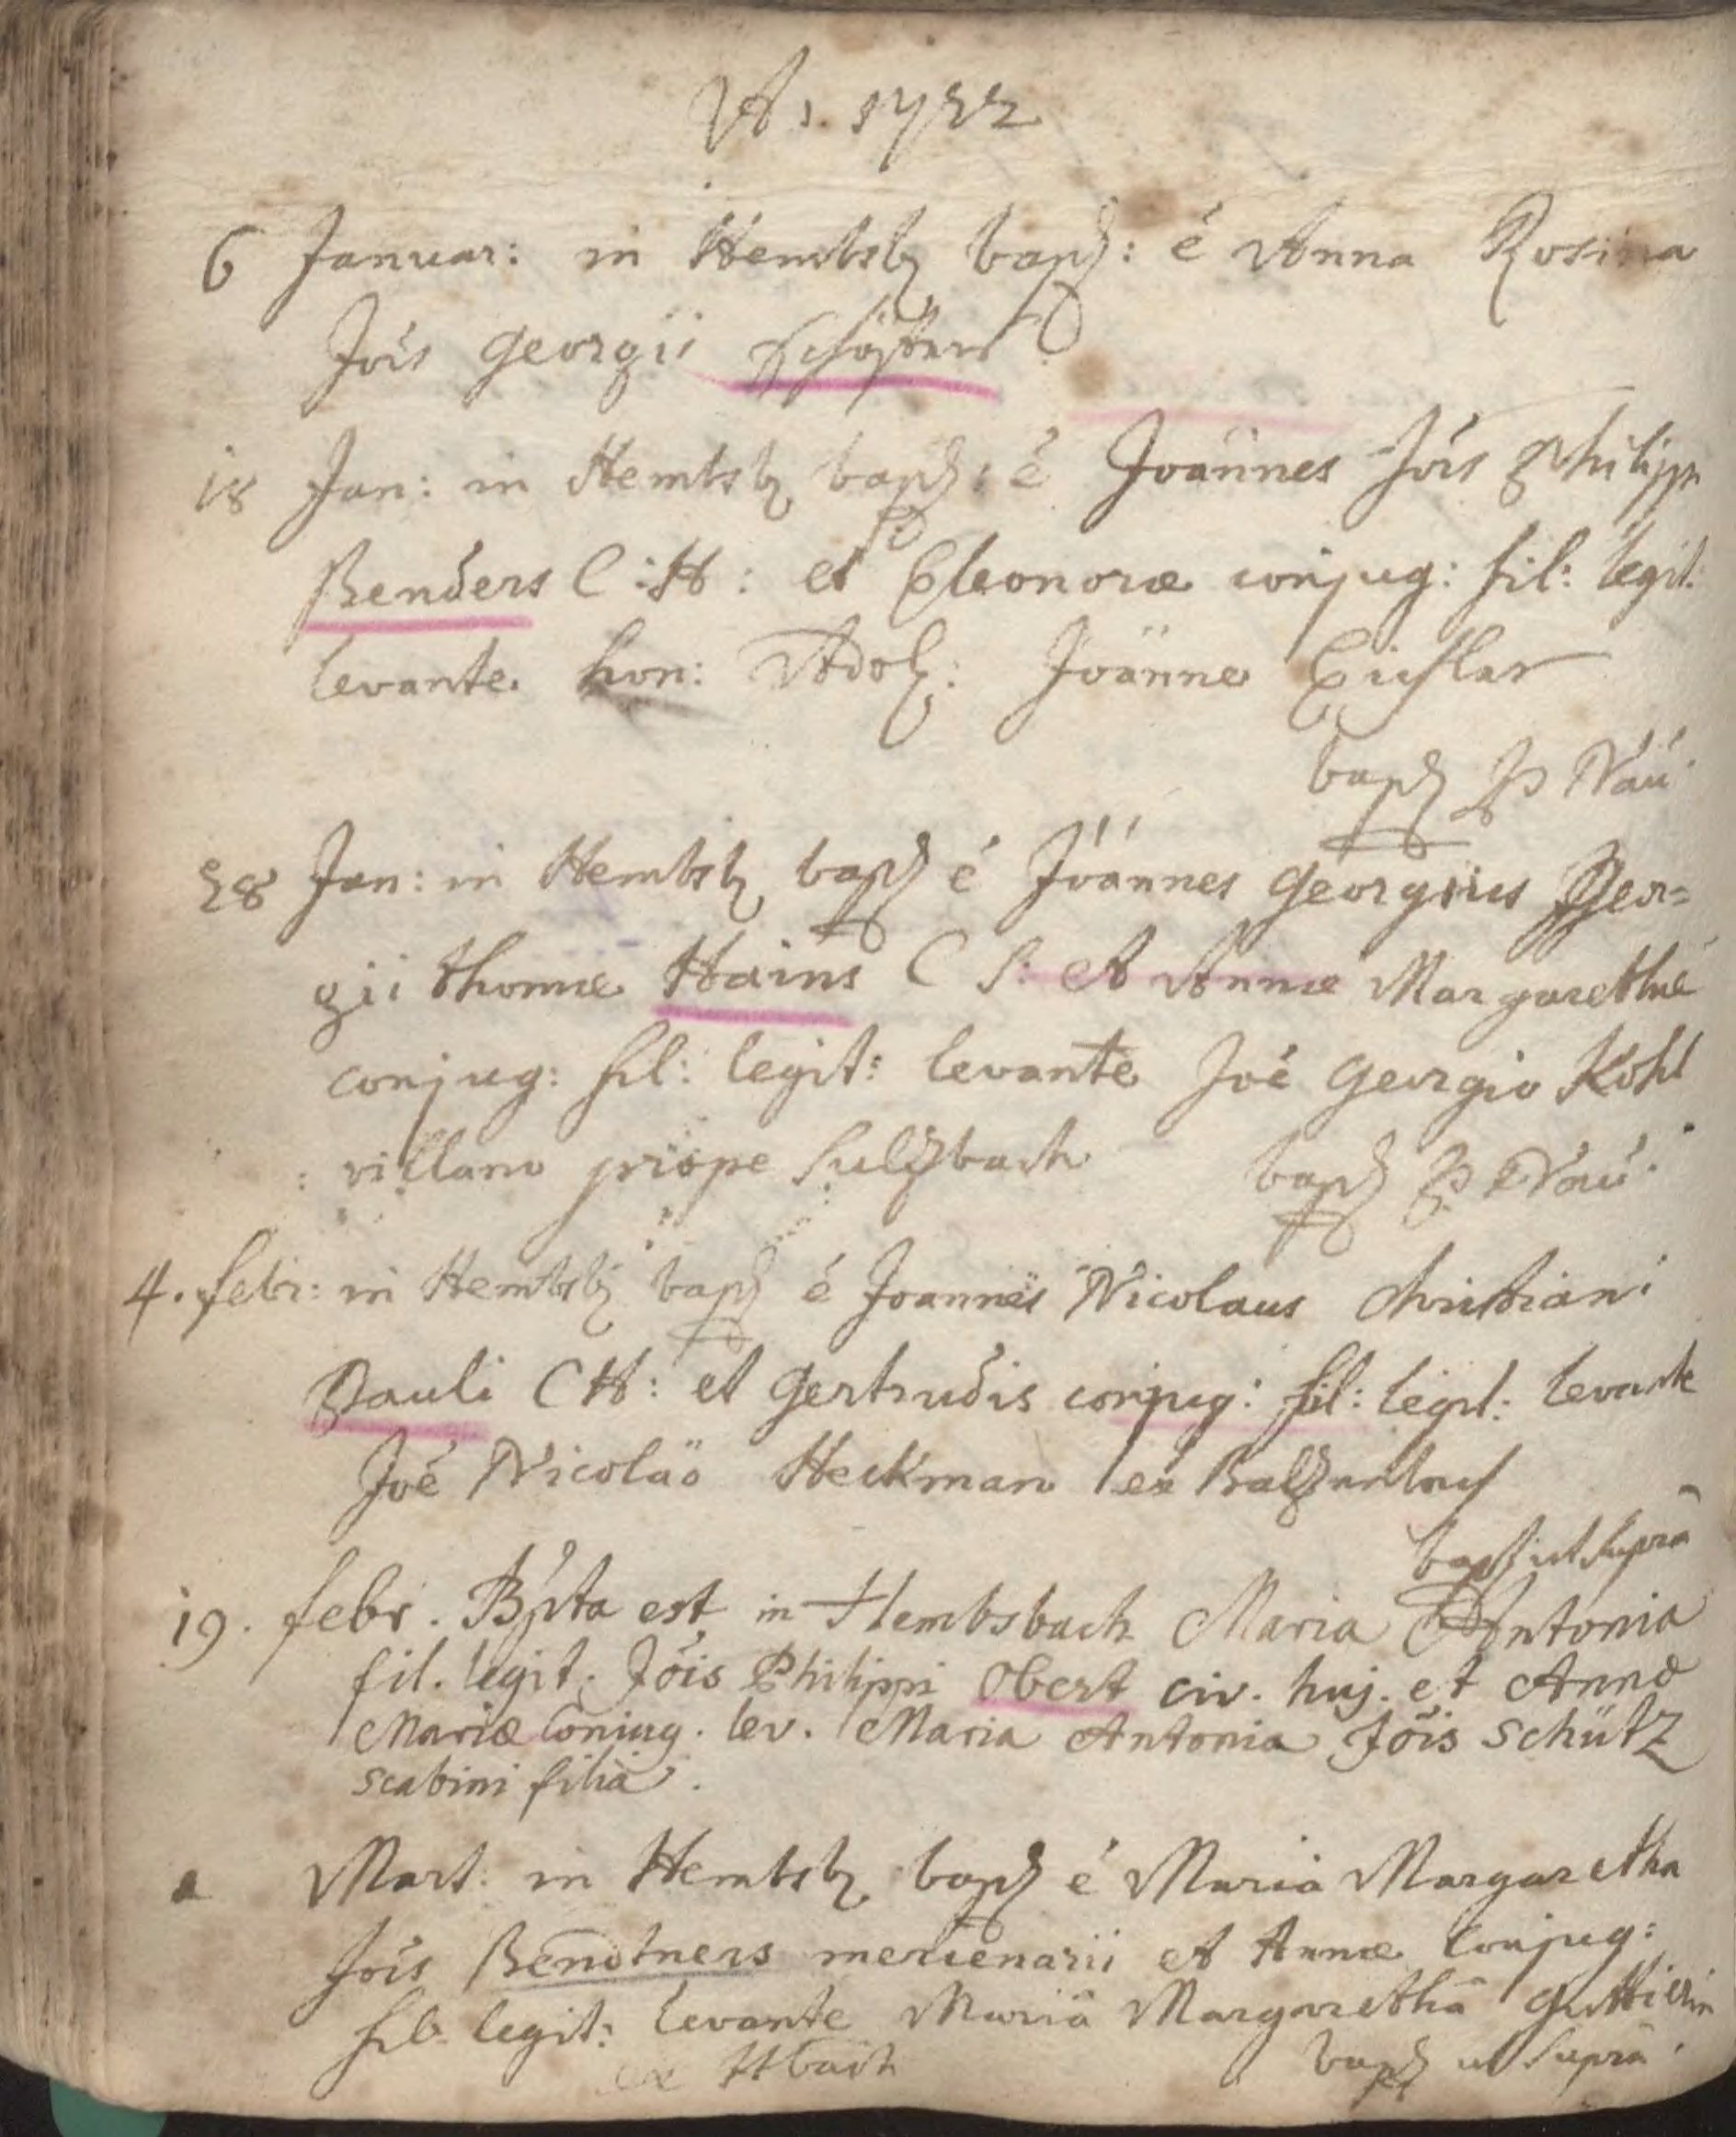 Ao. 1722
6 Januar: in Hembsb bapt: é Anna Rosina
Jōis Georgii
18 Jan: in Hembsb bapt: é Joannes Jōis Philippi
Benders C:H: et Eleonoræ conjug: fil: legit:
levante hon: Adol: Joanne
bapt P Nau
28 Jan: in Hembsb bapt é Joannes Georgius Geor=
gii Thomæ Hains C S: et Annæ Margarethæ
conjug: fil: legit: levante Joē Georgio Kohl
villano prope Sultzbach bapt P Nau.
4. febr: in Hembsb bapt é Joannes Nicolaus Christiani
Pauli C H: et Gertrudis conjug: fil: legit: levante
Joē Nicolao Heckman ex
bapt ut supra
19. febr. Bpta est in Hembsbach Maria Antonia
fil. legit. Jōis Philippi Obert civ. huj. et Annæ
Mariæ Coniug. lev. Maria Antonia Jōis Schütz
scabini filia.
Mart: in Hembsb bapt é Maria Margaretha
Jōis Bendtners mercenarii et Annæ Conjug:
fil legit: levante Mariâ Margarethâ
ex Hbach bapt ut supra.